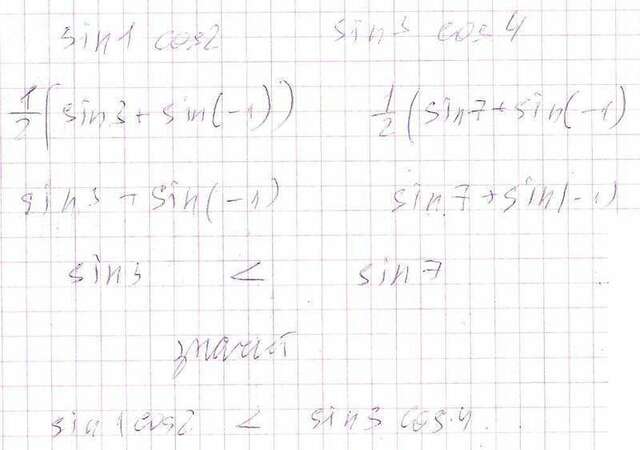 sin1 cos2 sin3 cos4
1/2(sin3+sin(-1)) 1/2(sin7+sin(-1)
sin3+sin(-1) sin7+sin(-1)
sin3 < sin7
значит
sin1cos2 < sin3 cos4.